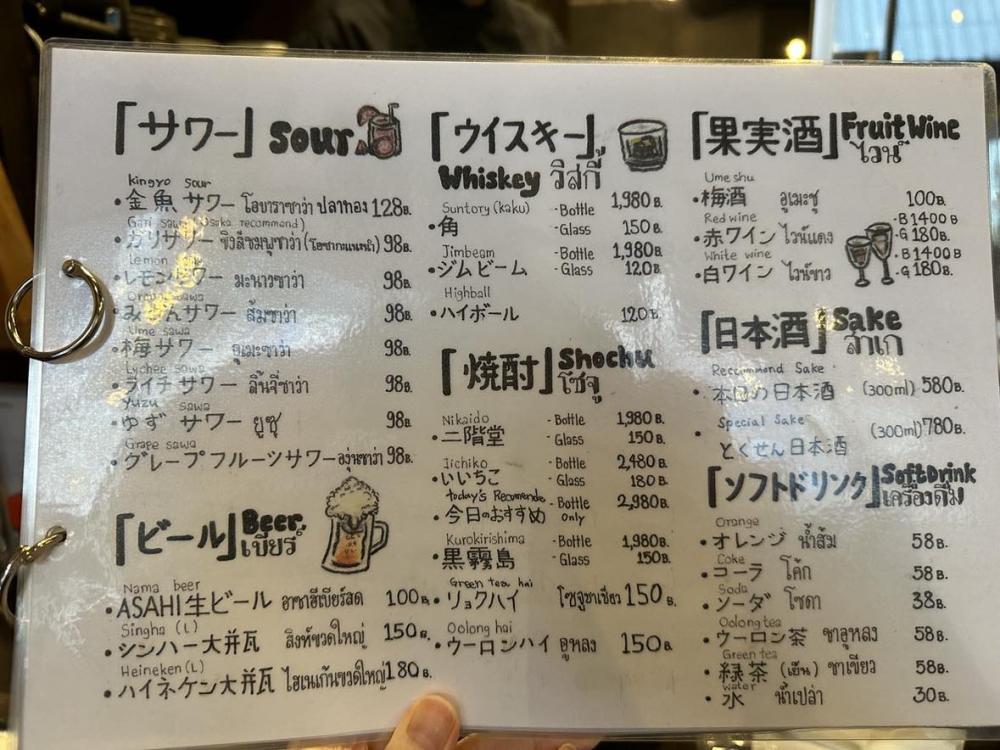 「サワー」Sour
Kingyo Sour
・金魚サワー 128B.
Gari sawa (Osaka recommend)
・ガリサワー 98B.
Lemon sawa
・レモンサワー มะนาวซาว่า 98B.
Orange sawa
・みかんサワー ส้มซาว่า 98B.
Ume sawa
・梅サワー อูเมะซาว่า 98B.
Lychee sawa
・ライチサワー ลิ้นจี่ซาว่า 98B.
Yuzu sawa
・ゆずサワー ยูซุ 98B.
Grape sawa
・グレープフルーツサワー องุ่นซาว่า 98B.
「ビール」Beer
เบียร์
Nama beer
・ASAHI生ビール อาซาฮีเบียร์สด 100B.
Singha (L)
・シンハー大弁瓦 สิงห์ขวดใหญ่ 150B.
Heineken (L)
・ハイネケン大弁瓦 ไฮเนเก้นขวดใหญ่ 180B.
「ウイスキー」
Whiskey วิสกี้
Suntory (kaku) -Bottle 1,980B.
・角 -Glass 150B.
Jimbeam -Bottle 1,980B.
・ジムビーム -Glass 120B.
Highball
・ハイボール 120B.
「焼酎」Shochu
โชจู
Nikaido -Bottle 1,980B.
・二階堂 -Glass 150B.
Iichiko -Bottle 2,480B.
・いいちこ -Glass 180B.
today's Recomende -Bottle 2,980B.
・今日のおすすめ only
Kurokirishima -Bottle 1,980B.
・黒霧島 -Glass 150B.
Green tea hai
・リョクハイ โชจูชาเขียว 150B.
Oolong hai
・ウーロンハイ อูหลง 150B.
「果実酒」Fruit Wine
ไวน์
Ume shu
・梅酒 อูเมะชุ 100B.
Red wine -B 1400B
・赤ワイン ไวน์แดง -G 180B.
White wine -B 1400B
・白ワイン ไวน์ขาว -G 180B.
「日本酒」Sake
สาเก
Recommend Sake
・本日の日本酒 (300ml) 580B.
Special Sake
・とくせん日本酒 (300ml) 780B.
「ソフトドリンク」Soft Drink
เครื่องดื่ม
Orange
・オレンジ น้ำส้ม 58B.
Coke
・コーラ โค้ก 58B.
Soda
・ソーダ โซดา 38B.
Oolong tea
・ウーロン茶 ชาอูหลง 58B.
Green tea
・緑茶 (เย็น) ชาเขียว 58B.
water
・水 น้ำเปล่า 30B.